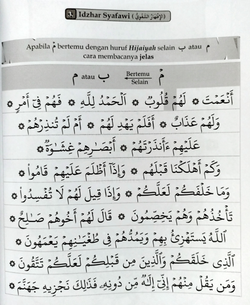 Idzhar Syafawi (اَلْإِظْهَارُ الشَّفَوِيُّ)
Apabila مْ bertemu dengan huruf Hijaiyah selain ب atau م
cara membacanya jelas
م atau ب Bertemu Selain مْ
أَنْعَمْتَ ۞ لَهُمْ قُلُوبٌ ۞ اَلْحَمْدُ لِلَّهِ ۞ فَهُمْ فِى أَمْرٍ
وَلَهُمْ عَذَابٌ ۞ أَفَلَمْ يَهْدِ لَهُمْ ۞ أَمْ لَمْ تُنْذِرْهُمْ
عَلَيْهِمْ ءَأَنْذَرْتَهُمْ ۞ أَبْصَٰرِهِمْ غِشَٰوَةٌ
وَكَمْ أَهْلَكْنَا قَبْلَهُمْ ۞ وَإِذَآ أَظْلَمَ عَلَيْهِمْ قَامُوا۟
وَمَا خَلَقَكُمْ لَعَلَّكُمْ ۞ وَإِذَا قِيلَ لَهُمْ لَا تُفْسِدُوا۟
تَأْخُذُهُمْ وَهُمْ يَخِصِّمُونَ ۞ قَالَ لَهُمْ أَخُوهُمْ صَٰلِحٌ
اَللَّهُ يَسْتَهْزِئُ بِهِمْ وَيَمُدُّهُمْ فِى طُغْيَٰنِهِمْ يَعْمَهُونَ
اَلَّذِى خَلَقَكُمْ وَالَّذِينَ مِنْ قَبْلِكُمْ لَعَلَّكُمْ تَتَّقُونَ
وَمَنْ يَقُلْ مِنْهُمْ إِنِّىٓ إِلَٰهٌ مِّنْ دُونِهِ فَذَٰلِكَ نَجْزِيهِ جَهَنَّمَ